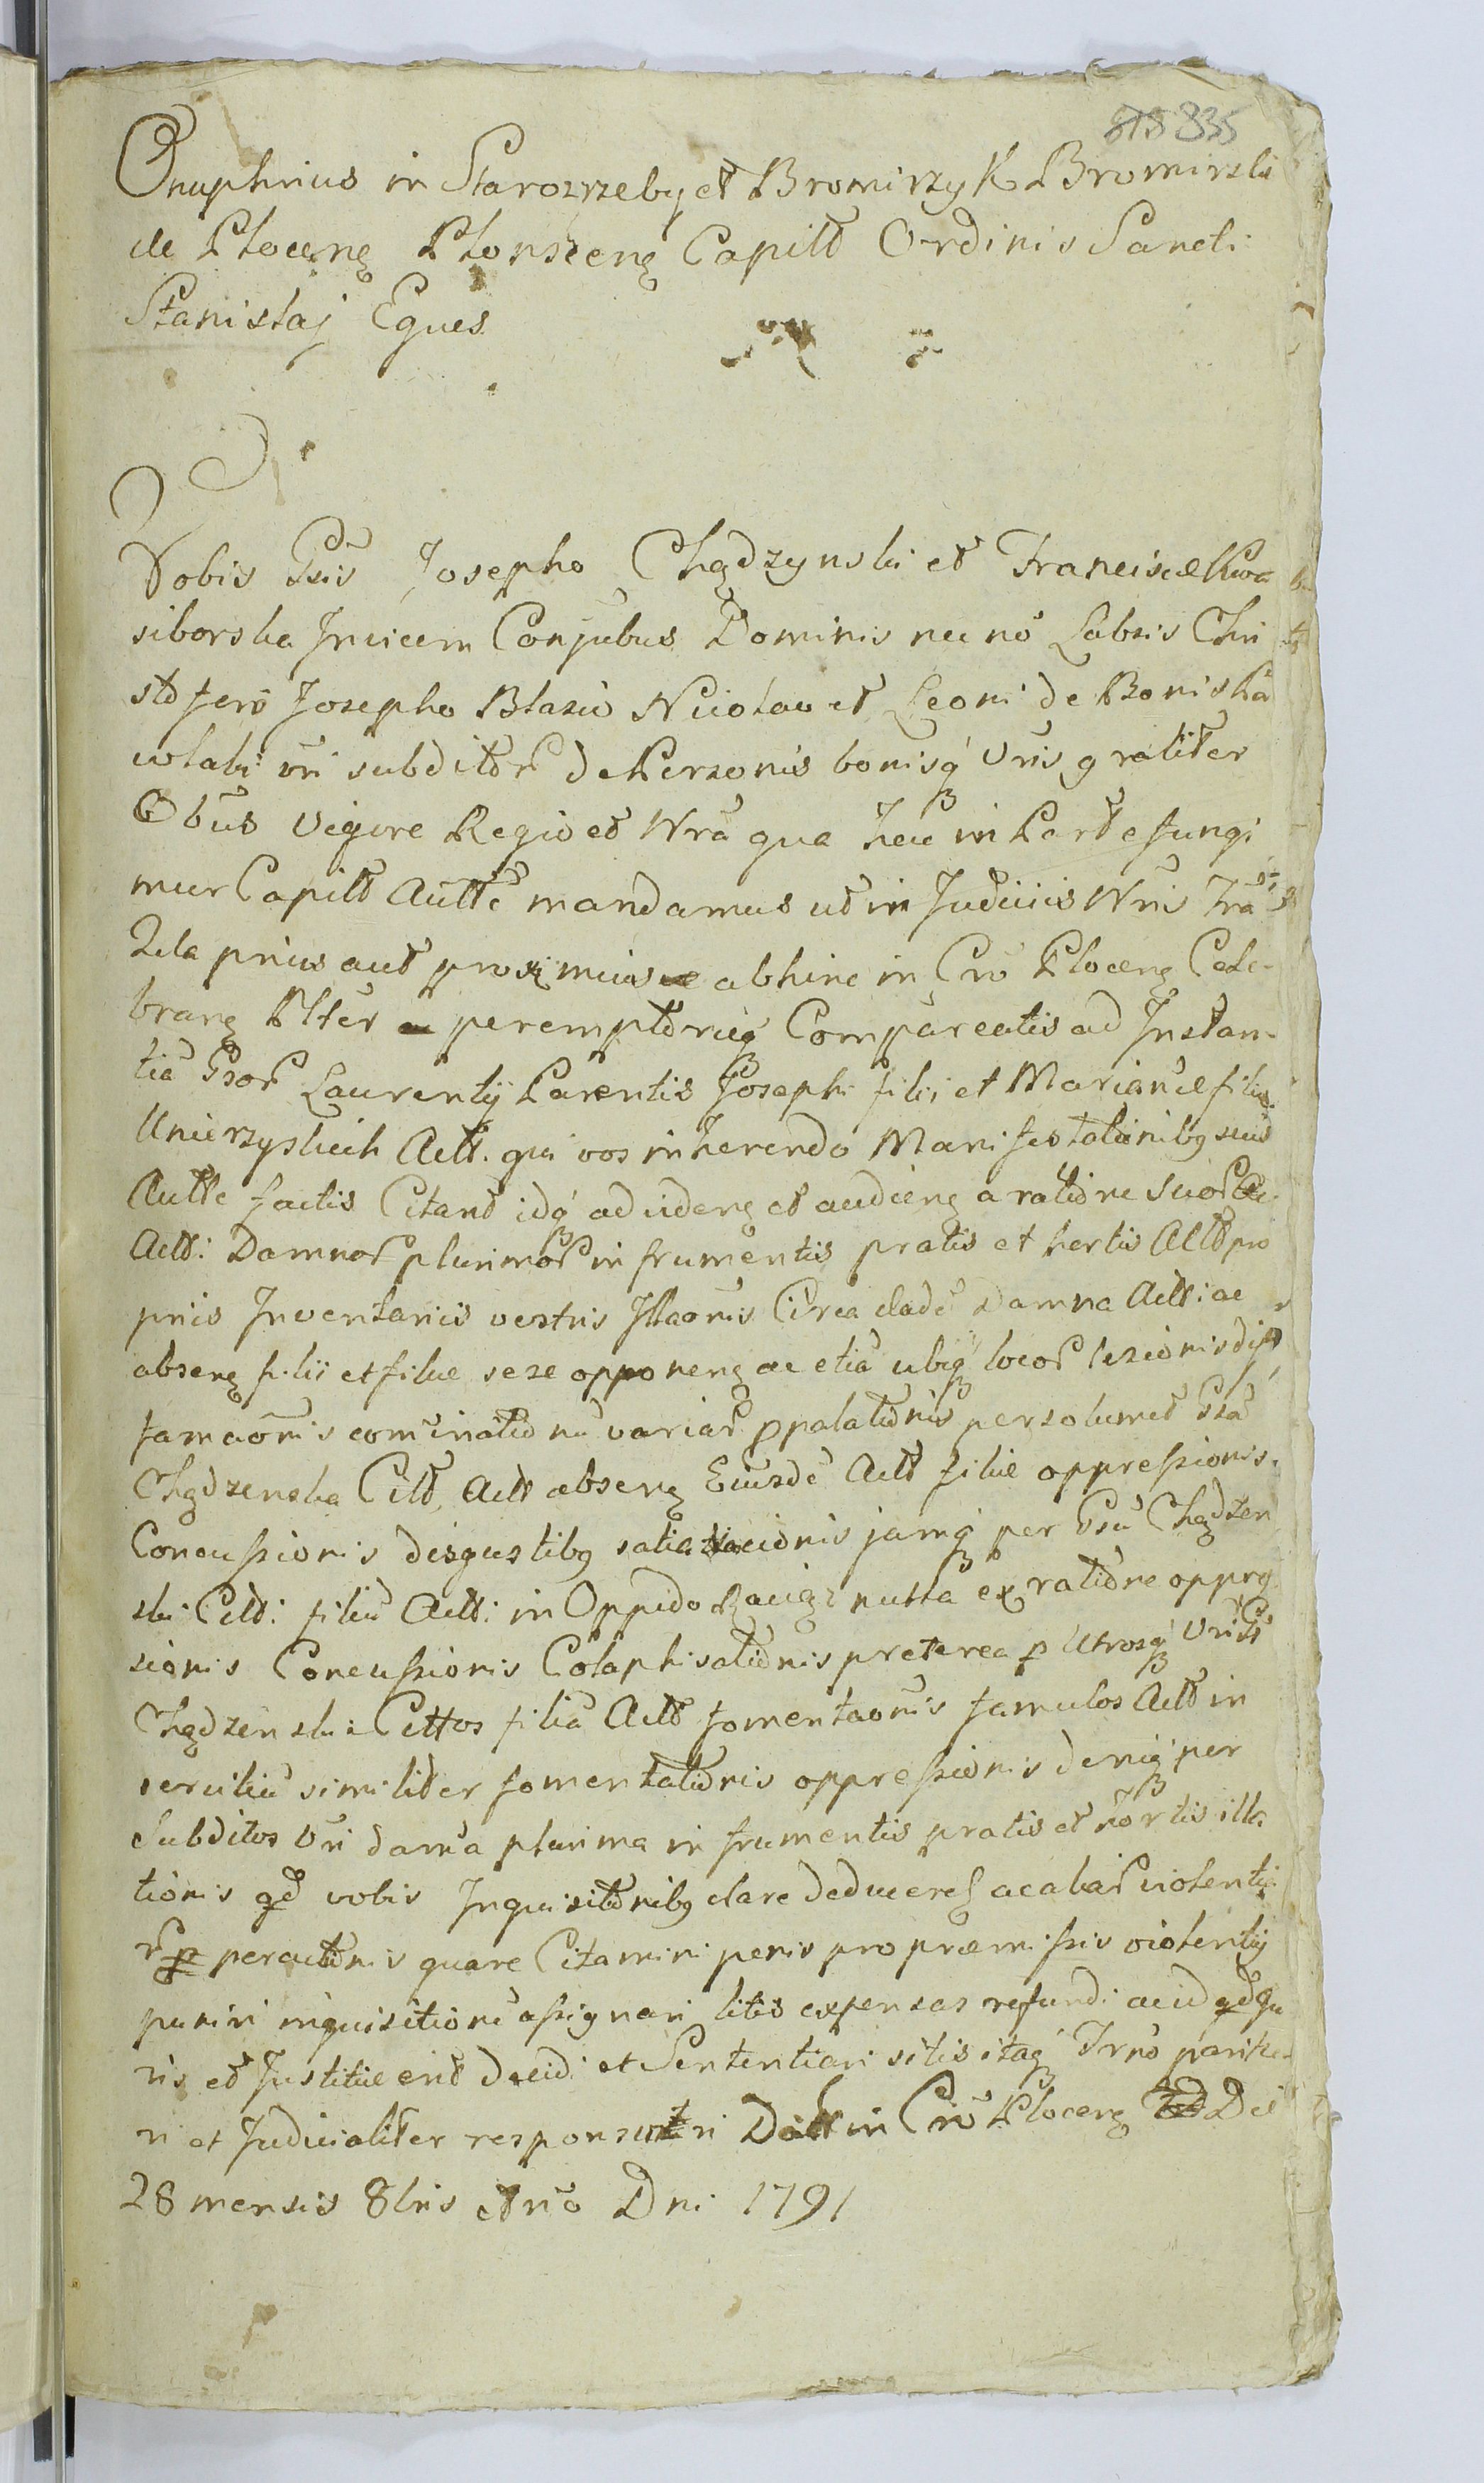 818 835
Onuphrius in Starozrzeby et Bromirzyk Bromirski
de Plocenę Plonscenę Capitt Ordinis Sancti
Stanislaj Eques
Vobis Gsis Josepho Chądzynski et Franciscæ Kwa
siborska Invicem Conjubus Dominis nec nō Labsis Chri
stoferō Josepho Blasiō Nicolao et Leoni de Bonis
vri subditor de Personis bonisq́ Vris gralit̃er
Obūs vigore Regio et Nrã qua hac in Parte fungi
mur Capitt Autte mandamus ut in Judiciis Nris
prius aut proximius abhinc in Crō Plocenę Cele-
branę Pltēr peremptorieq́ Compareatis ad Instan-
tiā Gsor Laurentij Parentis Josephi filii et Mariañæ filiæ
Unierzyskich Actt. qui vos inherendo Manifestatiōnibꝫ suis
Autte factis Citant idq́ ad videnę et audienę a ratiōne Suor
Actt: Damnor plurimor in frumentis pratis et hortis Actt pro
priis Inventariis vestris Illaōnis Circa eadē Damna Actt: ac
absenę filii et filiæ sese opponenę ac etiā ubiq́ locor lesiōnis diff
famaōnis com̄inatiōnū variar ꝓpalatiōnis per
Chądzenska Citt Actt absenę Eiusdē Actt filiæ oppreßionis.
Concußionis disgustibꝫ jamq́ per Gsū Chądzen
ski Citt: filiū Actt: in Oppido Raciąz nulla ex ratiōne oppre
sionis Concußionis Colaphisatiōnis preterea ꝑ Utrosq́
Chądzenskie Cittos filiā Actt fomentaōnis famulos Actt in
servitiū similiter fomentatiōnis oppreßiōnis deniq́ per
Subditos Vri dam̄a plurima in frumentis pratis et hortis illa
tiōnis qd vobis Inquisitōnibꝫ clare deducere ac aliar violentia
r peractiōnis quare Citamini penis pro præmißis violentij
puniri inquisitionē aßignari litis expensas refundi ac id qd Ju
ris et Justitiæ erit decidi et Sententiari sitis itaq́ Trnō parituri
ri et Judicialiter responsuri Datt in Crō Plocenę Die
28 mensis 8bris Anō Dni 1791